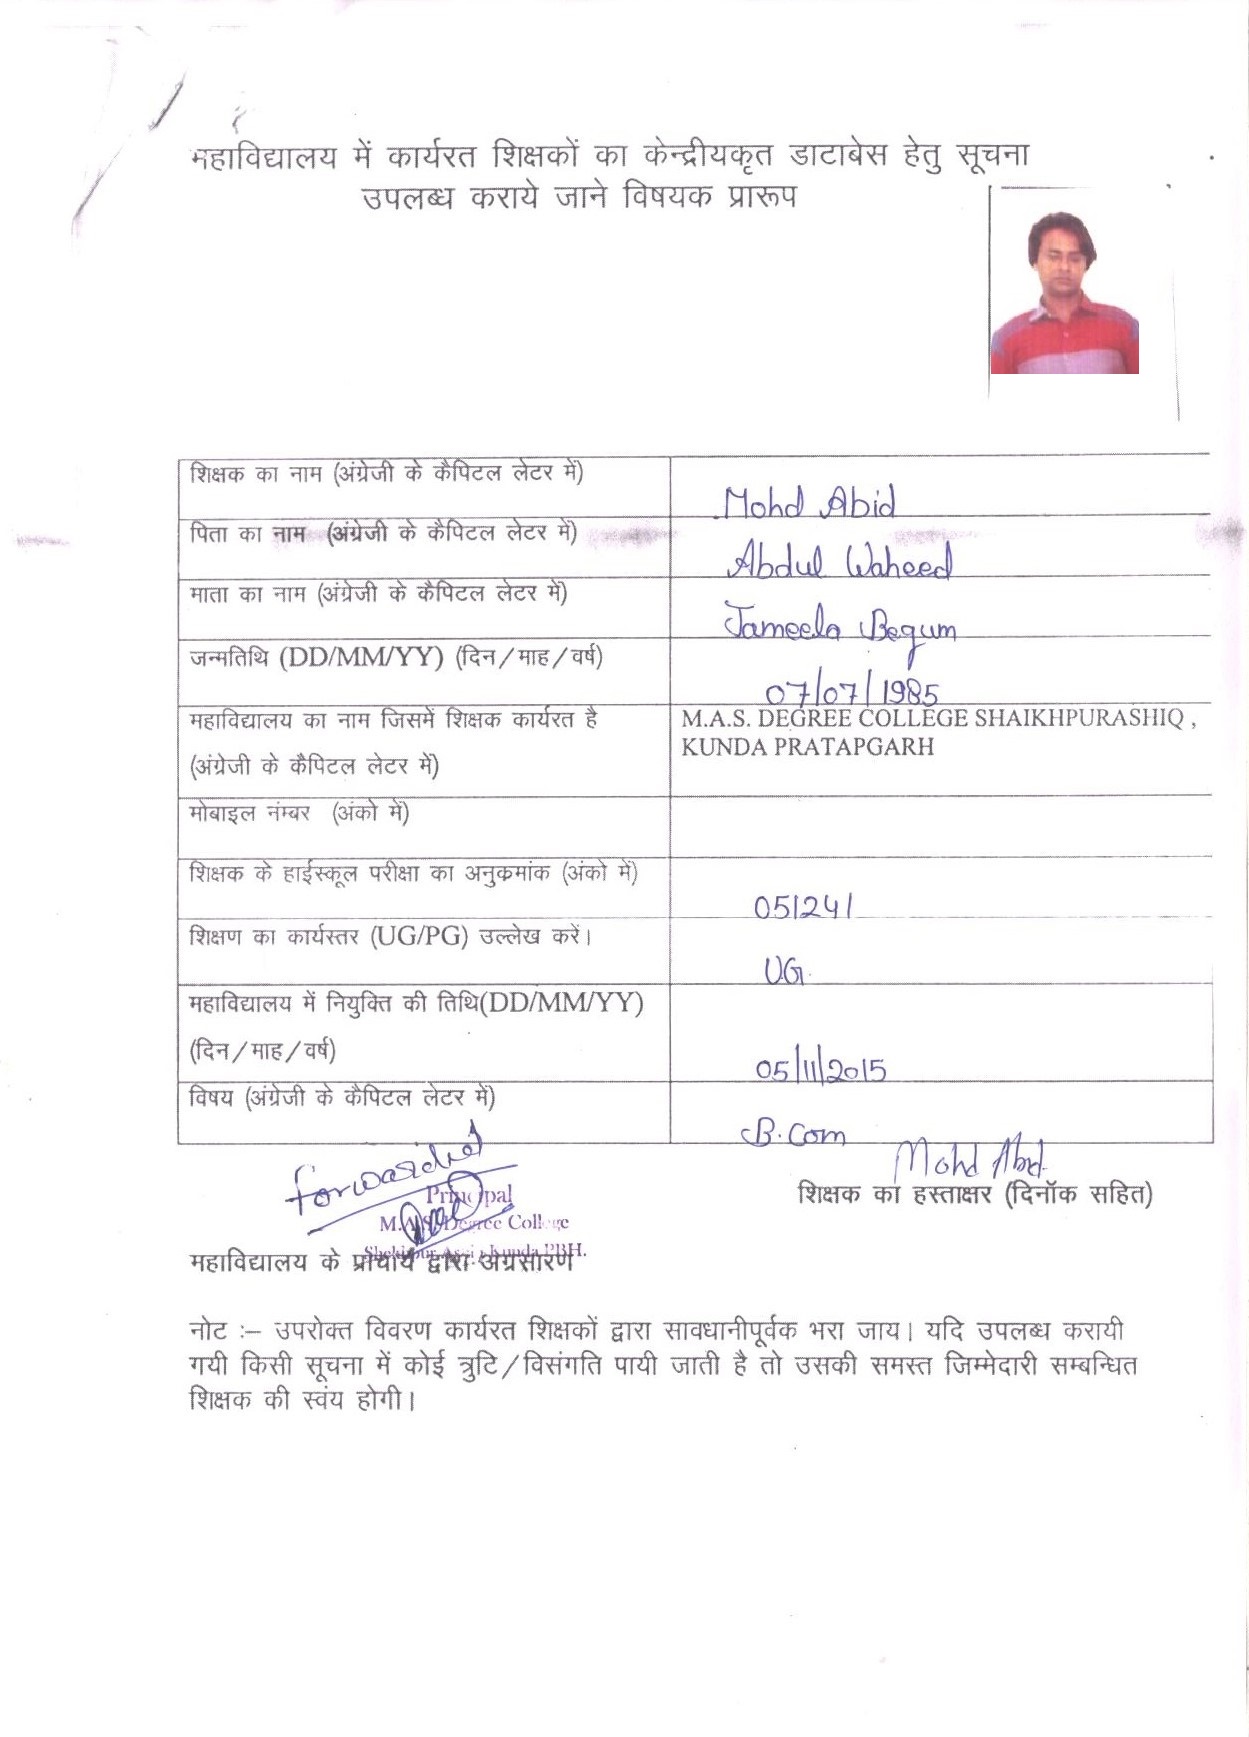 महाविद्यालय में कार्यरत शिक्षकों का केन्द्रीयकृत डाटाबेस हेतु सूचना
उपलब्ध कराये जाने विषयक प्रारूप
शिक्षक का नाम (अंग्रेजी के कैपिटल लेटर में)
Mohd Abid
पिता का नाम (अंग्रेजी के कैपिटल लेटर में)
Abdul Waheed
माता का नाम (अंग्रेजी के कैपिटल लेटर में)
Jameela Begum
जन्मतिथि (DD/MM/YY) (दिन/माह/वर्ष)
07/07/1985
महाविद्यालय का नाम जिसमें शिक्षक कार्यरत है
(अंग्रेजी के कैपिटल लेटर में)
M.A.S. DEGREE COLLEGE SHAIKHPURASHIQ ,
KUNDA PRATAPGARH
मोबाइल नंम्बर (अंको में)
शिक्षक के हाईस्कूल परीक्षा का अनुक्रमांक (अंको में)
051241
शिक्षण का कार्यस्तर (UG/PG) उल्लेख करें।
UG
महाविद्यालय में नियुक्ति की तिथि(DD/MM/YY)
(दिन/माह/वर्ष)
05/11/2015
विषय (अंग्रेजी के कैपिटल लेटर में)
B.Com
Mohd Abid
शिक्षक का हस्ताक्षर (दिनॉक सहित)
Principal
M.A.S. Degree College
महाविद्यालय के प्राचार्य द्वारा अग्रसारण
नोट :– उपरोक्त विवरण कार्यरत शिक्षकों द्वारा सावधानीपूर्वक भरा जाय। यदि उपलब्ध करायी
गयी किसी सूचना में कोई त्रुटि/विसंगति पायी जाती है तो उसकी समस्त जिम्मेदारी सम्बन्धित
शिक्षक की स्वंय होगी।